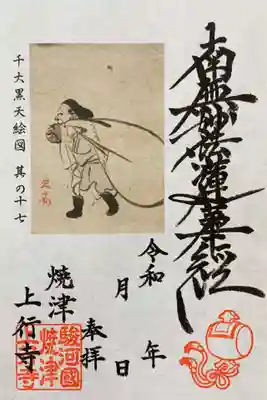 南無妙法蓮華経
千大黒天絵図 其の十七
令和 年
月 日
奉拝
焼津
上行寺
駿河國
焼津
上行寺